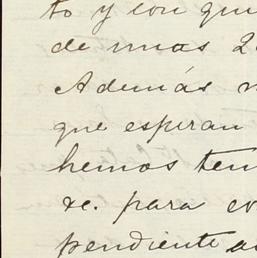 to y con qui
de unas 2
Además
que esperan
hemos ten
&c. para
pendiente